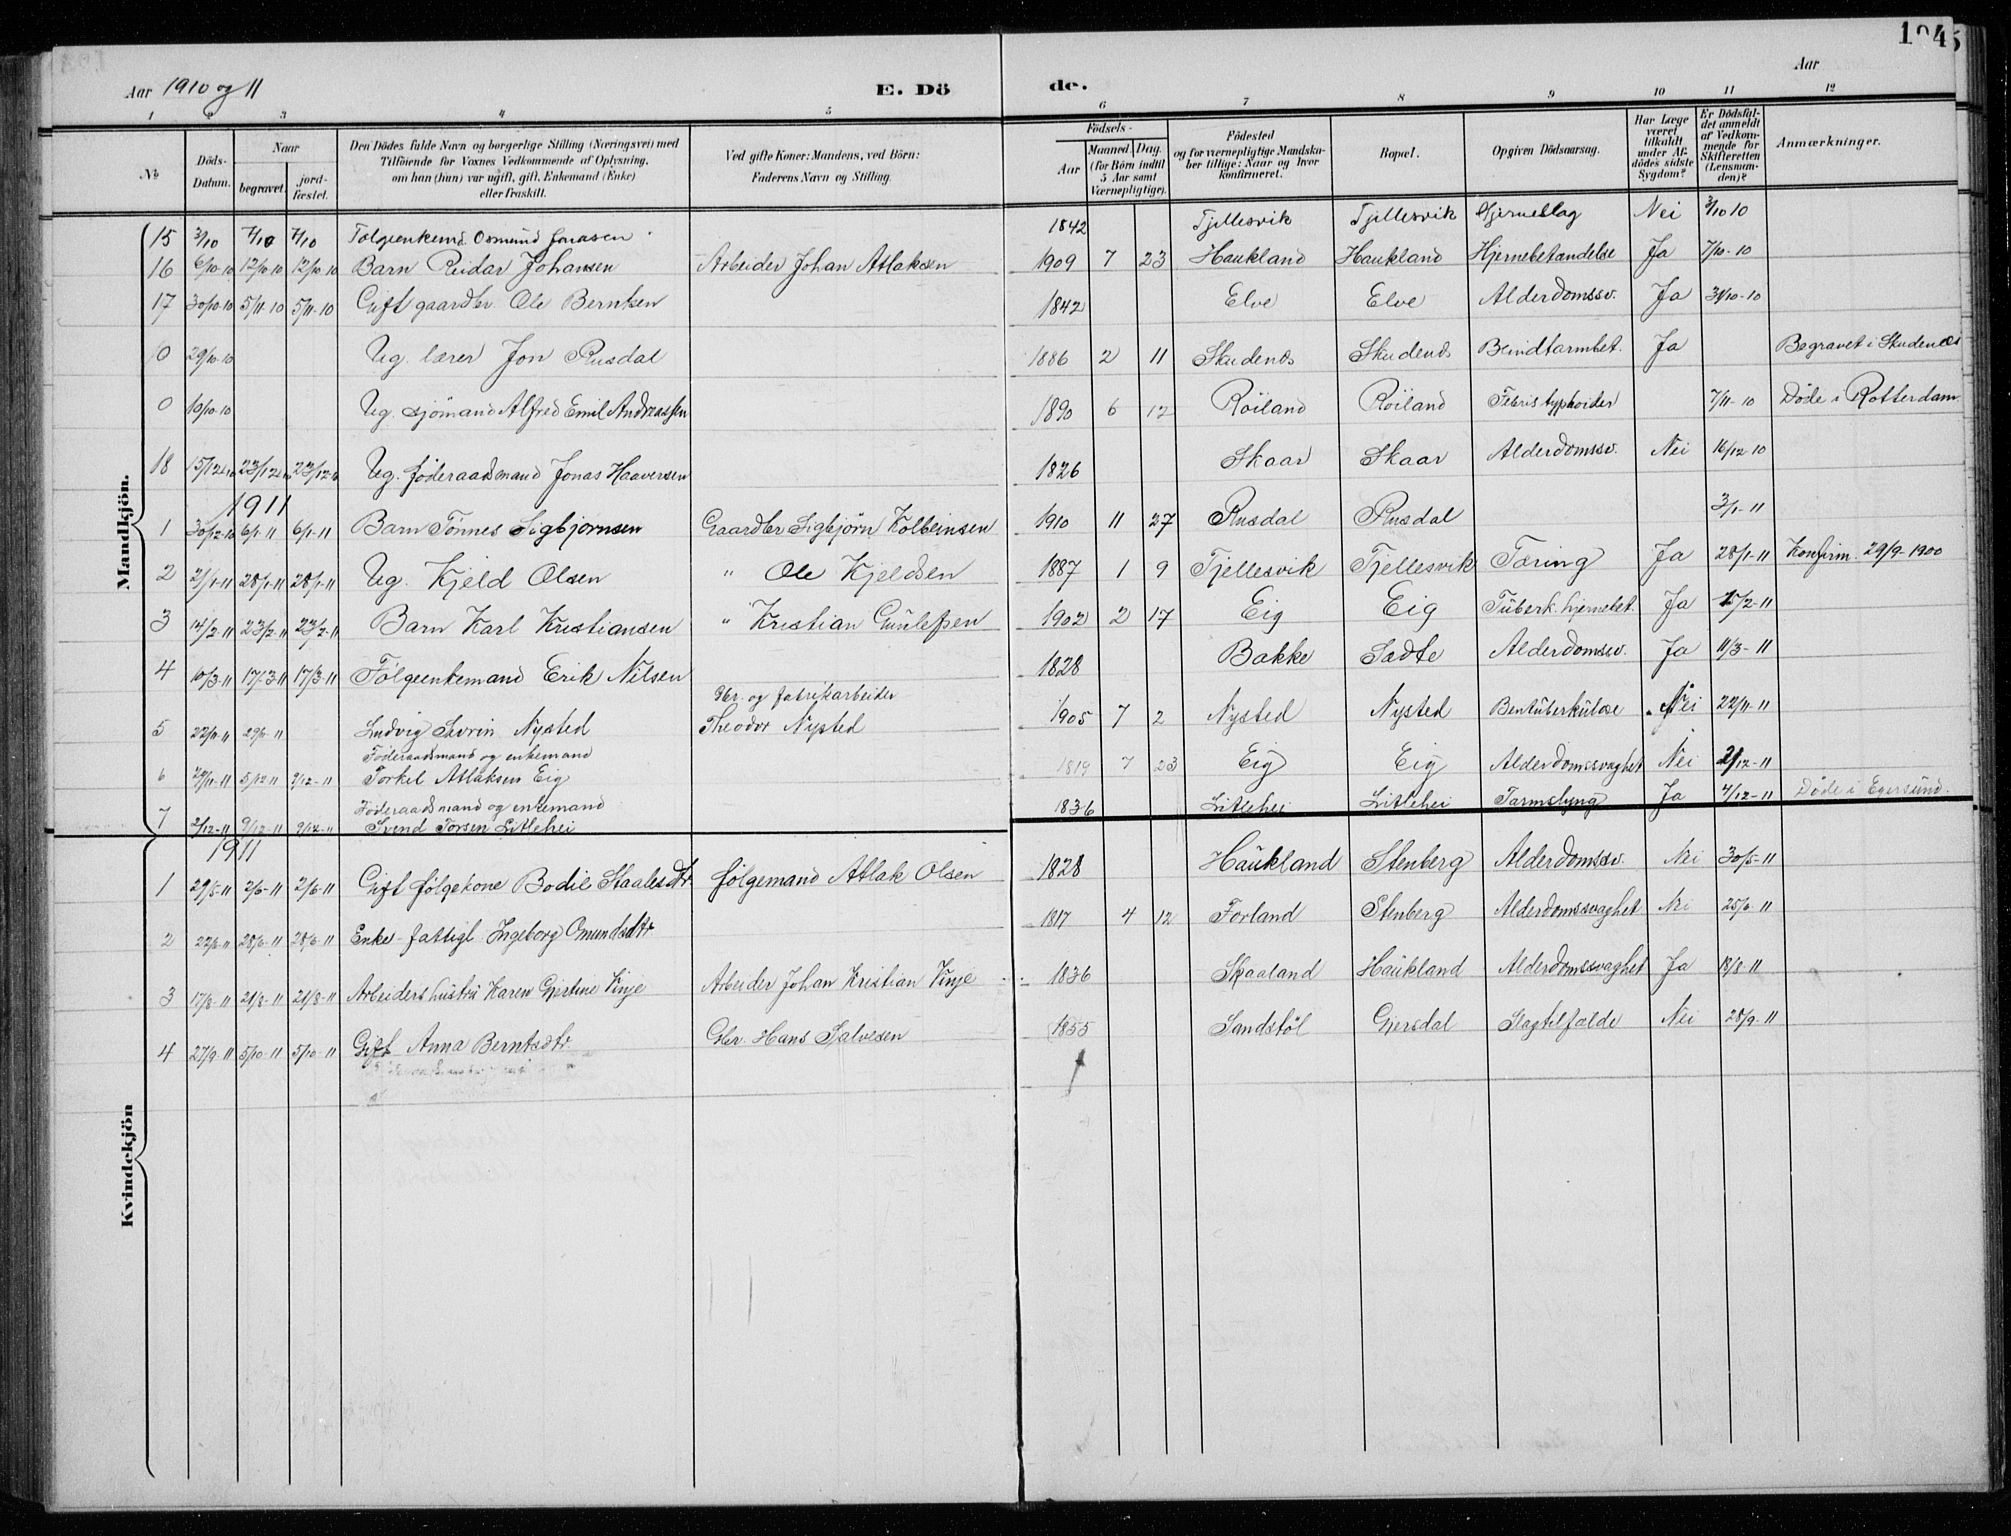 Aar 1910 og 11
E. Döde.
Aar
1 2 3 4 5 6 7 8 9 10 11 12
№
Döds-Datum.
Naar
begravet.
jord-fæstet.
Den Dödes fulde Navn og borgerlige Stilling (Næringsvei) med Tilföiende for Voxnes Vedkommende af Oplysning, om han (hun) var ugift, gift, Enkemand (Enke) eller fraskilt.
Ved gifte Koner: Mandens, ved Börn: Faderens Navn og Stilling.
Födsels-
Aar
Maaned. Dag.
(for Börn indtil 5 Aar samt Værnepligtige).
Födested og for værnepligtige Mandskaber tillige: Naar og hvor konfirmeret.
Bopæl.
Opgiven Dödsaarsag.
Har Læge været tilkaldt under Afdödes sidste Sygdom?
Er Dödsfaldet anmeldt af Vedkommende for Skifteretten (Lensmanden)?
Anmærkninger.
Mandkjön.
15 3/10 7/10 7/10 Følgeenkemd. Osmund Jonasen 1842 Tjellesvik Tjellesvik Hjerneslag Nei 3/10 10
16 6/10-10 12/10-10 12/10-10 Barn Reidar Johansen Arbeider Johan Atlaksen 1909 7 23 Haukland Haukland Hjernebetændelse Ja 7/10-10
17 30/10-10 5/11-10 5/11-10 Gift gaardbr. Ole Berntsen 1842 Elve Elve Alderdomssv. Ja 31/10-10
0 29/10-10 Ug. lærer Jon Rusdal 1886 2 11 Skudenæs Skudenæs Blindtarmbet. Ja Begravet i Skudenæs
0 10/10-10 Ug. sjömand Alfred Emil Andreassen 1890 6 12 Röiland Röiland Febris typhoider 7/11-10 Döde i Rotterdam
18 15/12-10 23/12-10 23/12-10 Ug. føderaadsmand Jonas Haaversen 1826 Skaar Skaar Alderdomssv. Nei 16/12 10
1911
1 30/12-10 6/1-11 6/1-11 Barn Tönnes Sigbjörnsen Gaardbr Sigbjörn Kolbeinsen 1910 11 27 Rusdal Rusdal 3/1-11
2 21/1-11 28/1-11 28/1-11 Ug. Kjeld Olsen " Ole Kjeldsen 1887 1 9 Tjellesvik Tjellesvik Tæring Ja 28/1-11 Konfirm. 29/9-1900
3 14/2-11 23/2-11 23/2-11 Barn Karl Kristiansen " Kristian Gunlefsen 1902 2 17 Eig Eig Tuberk. hjernebet. Ja 15/2-11
4 10/3-11 17/3-11 17/3-11 Følgeenkemand Erik Nilsen 1828 Bakke Sadte Alderdomssv. Ja 11/3-11
5 22/11-11 29/-11 Ludvig Severin Nysted Gbr. og fabrikarbeider Theodor Nysted 1905 7 2 Nysted Nysted Bentuberkulose Nei 22/11-11
6 5/12 11 9/12-11 Føderaadsmand og enkemand Torkel Atlaksen Eig 1819 7 23 Eig Eig Alderdomssvaghet Nei 2/12-11
7 2/12-11 9/12-11 9/12-11 Føderaadsmand og enkemand Svend Torsen Litlehei 1836 Litlehei Litlehei Tarmslyng Ja 4/12-11 Döde i Egersund.
Kvindekjön
1911
1 29/5-11 2/6-11 2/6-11 Gift følgekone Bodil Staalesdtr. følgemand Atlak Olsen 1828 Haukland Stenberg Alderdomssv. Nei 30/5-11
2 22/6-11 28/6-11 28/6-11 Enke-fattigl. Ingeborg Omundsdtr 1817 4 12 Forland Stenberg Alderdomssvaghet Nei 25/6-11
3 17/8-11 21/8-11 21/8-11 Arbeiders hustru Karen Gjertine Vinje Arbeider Johan Kristian Vinje 1836 Skaaland Haukland Alderdomssvaghet Ja 18/8-11
4 27/9-11 5/10-11 5/10-11 Gift Anna Berntsdtr. Gbr. Hans Salvesen 1855 Sandstöl Gjersdal Slagtilfælde Nei 28/9-11